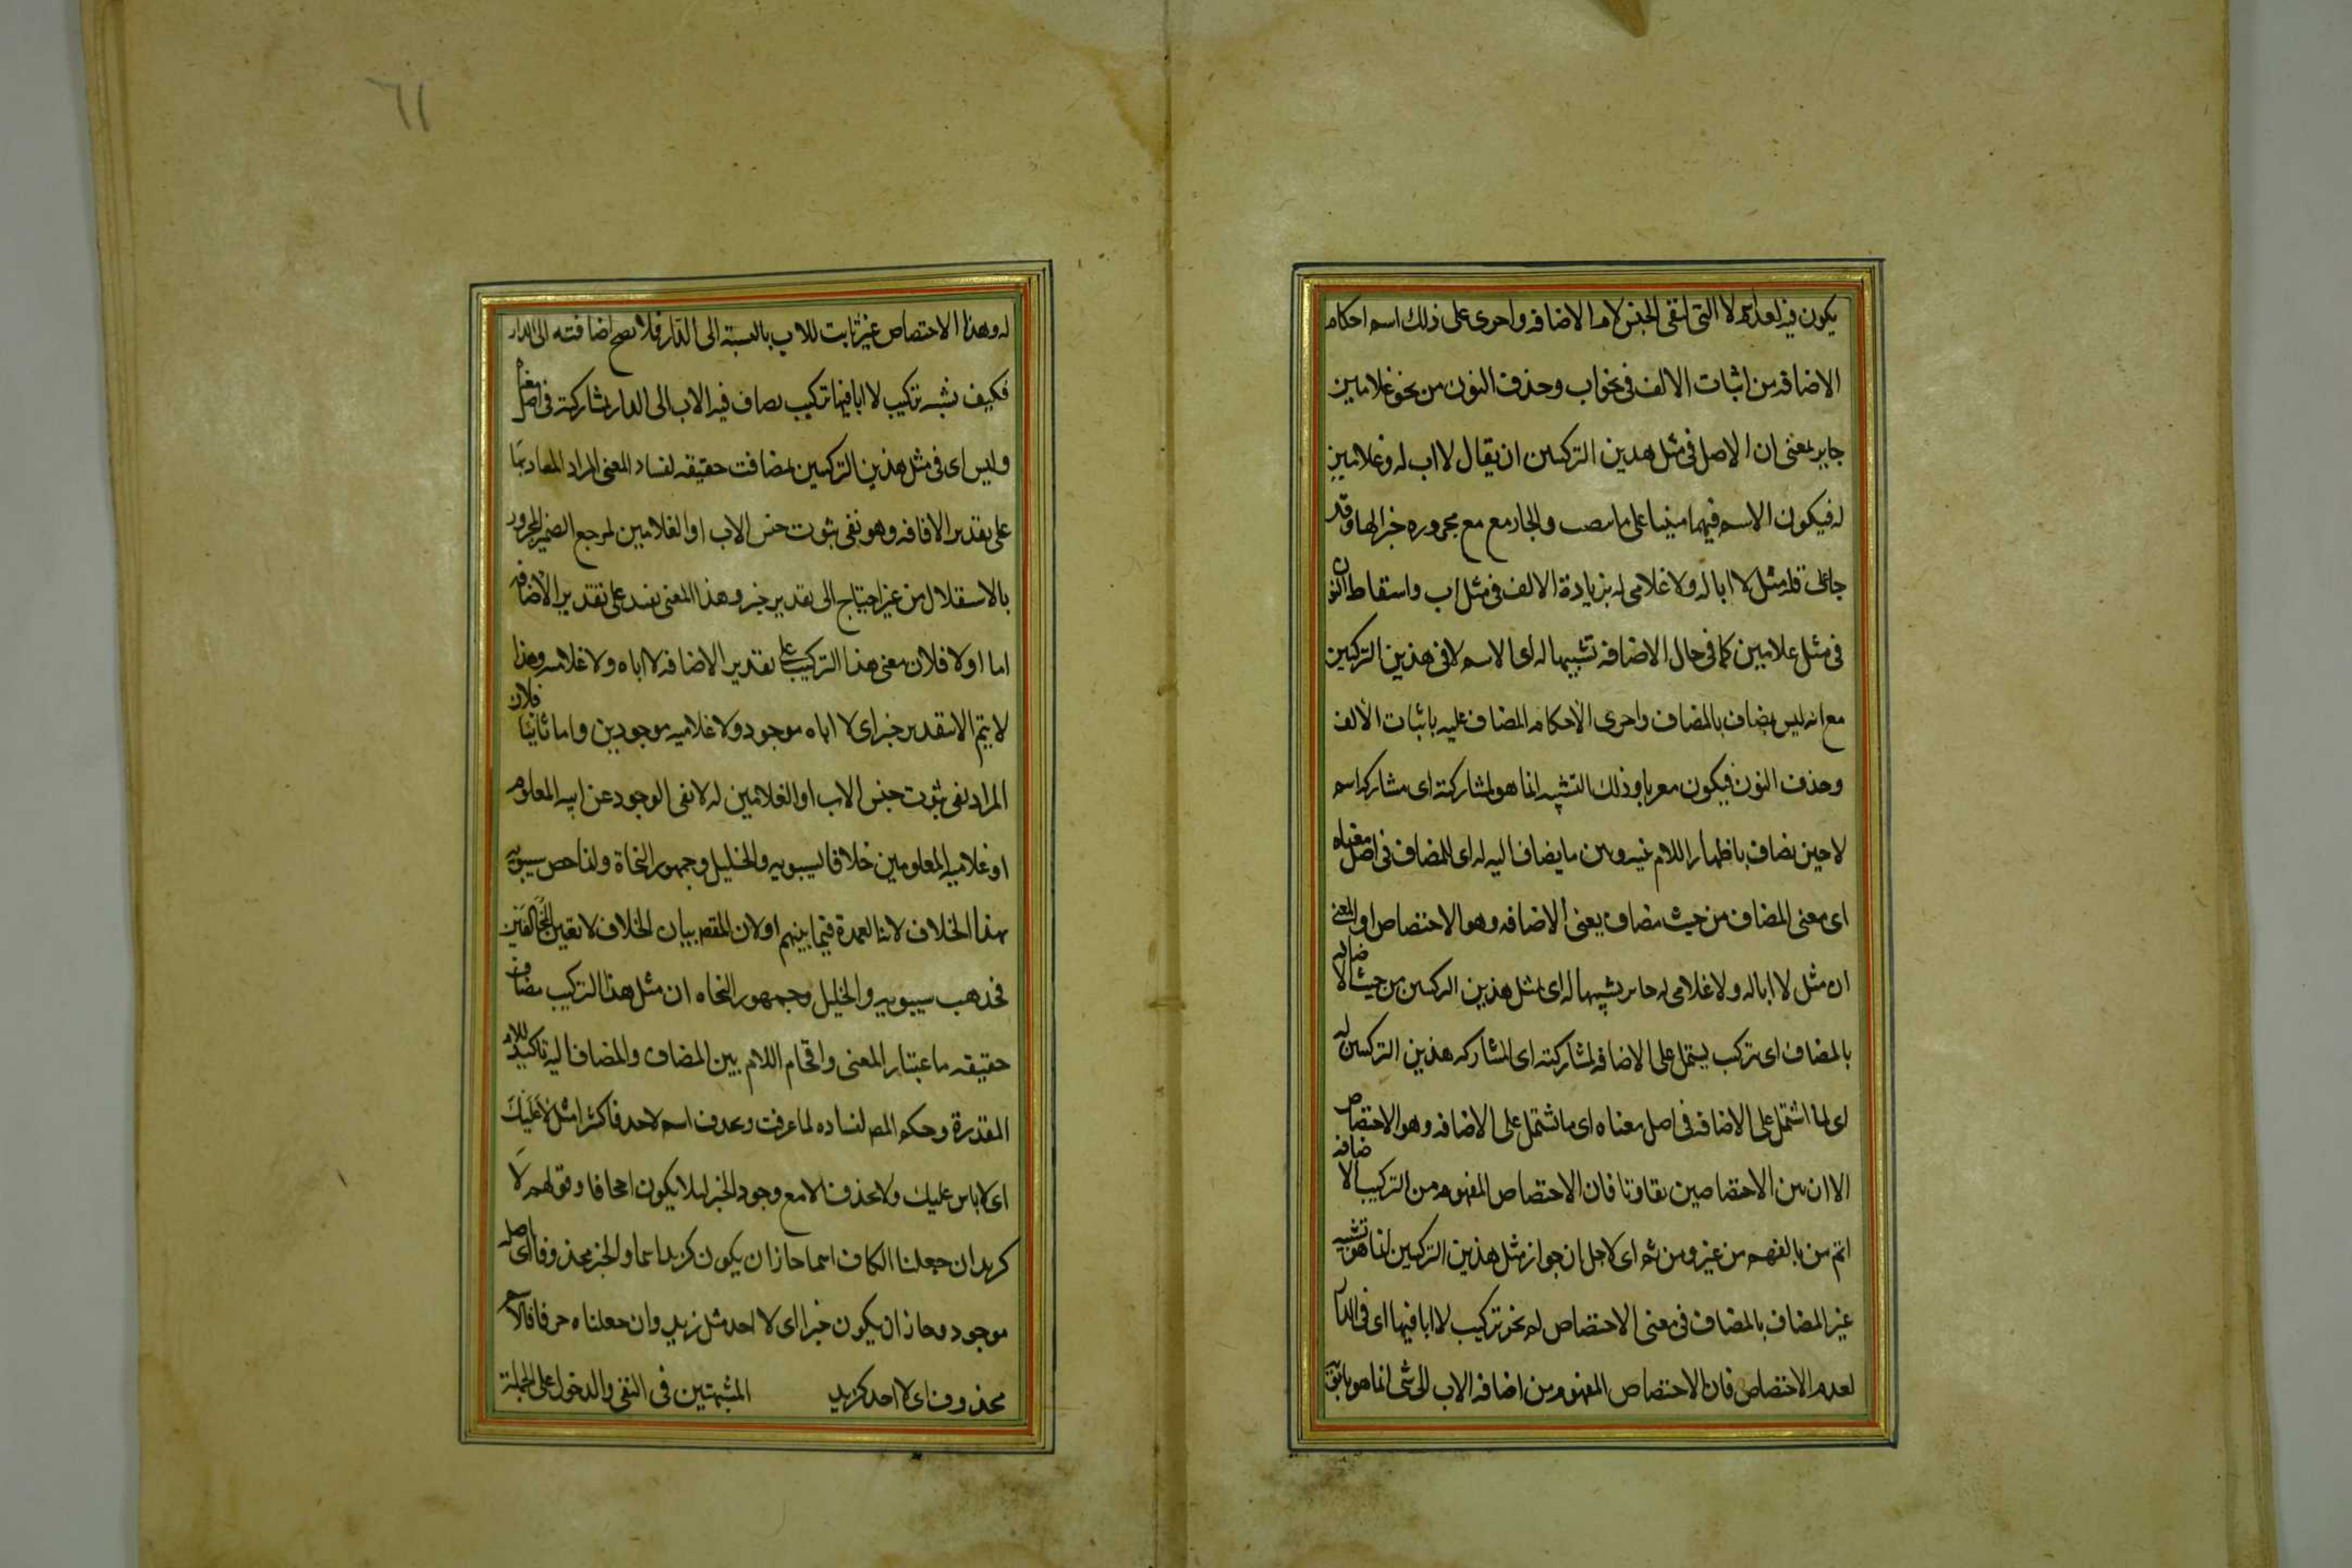 يكون فيه بعد اسم لا التى لنفى الجنس لام الاضافه واجرى على ذلك اسم احكام
الاضافه من اثبات الالف فى نحو اب وحذف النون من نحو غلامين
جايز بمعنى ان الاصل فى مثل هذين التركيبين ان يقال لا اب له وغلامين
له فيكون الاسم فيهما مبنيا على ما ينصب والجار مع مع مجروره خبرا لها وقد
جا على قله مثل لا ابا له ولا غلامى له بزيادة الالف فى مثل اب واسقاط النون
فى مثل غلامين كما فى حال الاضافه تشبيها له اى الاسم لا فى هذين التركيبين
مع انه ليس بمضاف بالمضاف واجرى الاحكام المضاف عليه باثبات الالف
وحذف النون فيكون معربا وذلك التشبيه انما هو لمشاركته اى مشاركه اسم
لا حين يضاف باظهار اللام بينه وبين ما يضاف اليه له اى للمضاف فى اصل معناه
اى معنى المضاف من حيث مضاف يعنى الاضافه وهو الاختصاص او المعنى
ان مثل لا ابا له ولا غلامى له جايز تشبيها له اى لمثل هذين التركيبين من حيث الاضافه
بالمضاف اى بتركيب يشتمل على الاضافه لمشاركته اى لمشاركه هذين التركيبين له
اى لما اشتمل على الاضافه فى اصل معناه اى ما اشتمل على الاضافه وهو الاختصاص
الا ان بين الاختصاصين تفاوتا فان الاختصاص المفهوم من التركيب الاضافه
اتم من بالفهم من غيره ومن ثم اى لاجل ان جواز مثل هذين التركيبين انما هو تشبيه
غير المضاف بالمضاف فى معنى الاختصاص لم يجز تركيب لا ابا فيها اى فى الدار
لعدم الاختصاص فان الاختصاص المفهوم من اضافه الاب الى شى انما هو بابوته
٦١
له وهذا الاختصاص غير ثابت للاب بالنسبة الى الدار فلا يصح اضافته الى الدار
فكيف يشبه تركيب لا ابا فيها تركيب يضاف فيه الاب الى الدار لمشاركته فى اصل معناه
وليس اى فى مثل هذين التركيبين بمضافت حقيقه لفساد المعنى المراد المفاد بما
على تقدير الاضافه وهو نفى ثبوت جنس الاب او الغلامين لمرجع الضمير المجرور
بالاستقلال من غير احتياج الى تقدير خبر وهذا المعنى يفسد على تقدير الاضافه
اما اولا فلان معنى هذا التركيب على تقدير الاضافه لا اباه ولا غلاميه وهذا
لا يتم الا بتقدير خبر اى لا اباه موجود ولا غلاميه موجودين واما ثانيا فلان
المراد نفى ثبوت جنس الاب او الغلامين له لا نفى الوجود عن ابيه المعلوم
او غلاميه المعلومين خلافا لسيبويه والخليل وجمهور النحاة وانما خص سيبويه
بهذا الخلاف لانه العمدة فيما بينهم او لان المقصد بيان الخلاف لا تعيين المخالفين
فمذهب سيبويه والخليل وجمهور النحاه ان مثل هذا التركيب مضاف
حقيقه باعتبار المعنى واقحام اللام بين المضاف والمضاف اليه تاكيدا للام
المقدرة وحكم المص لفساده لما عرفت ويحذف اسم لا حذفا كثيرا مثل لا عليك
اى لا باس عليك ولا يحذف الا مع وجود الخبر ليلا يكون اجحافا وقولهم لا
كزيد ان جعلنا الكاف اسما جاز ان يكون كزيد اسما والخبر محذوفا اى لا مثله
موجود وجاز ان يكون خبرا اى لا احد مثل زيد وان جعلناه حرفا فالاسم
محذوف اى لا احد كزيد المشبهتين فى النفى والدخول على الجملة